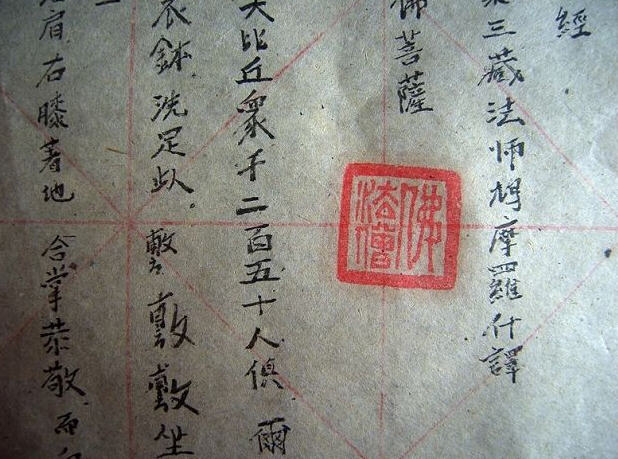 經
三藏法師鳩摩羅什譯
佛菩薩
佛法僧
大比丘眾千二百五十人俱 爾
衣鉢洗足 敷敷坐
肩右膝著地 合掌恭敬而